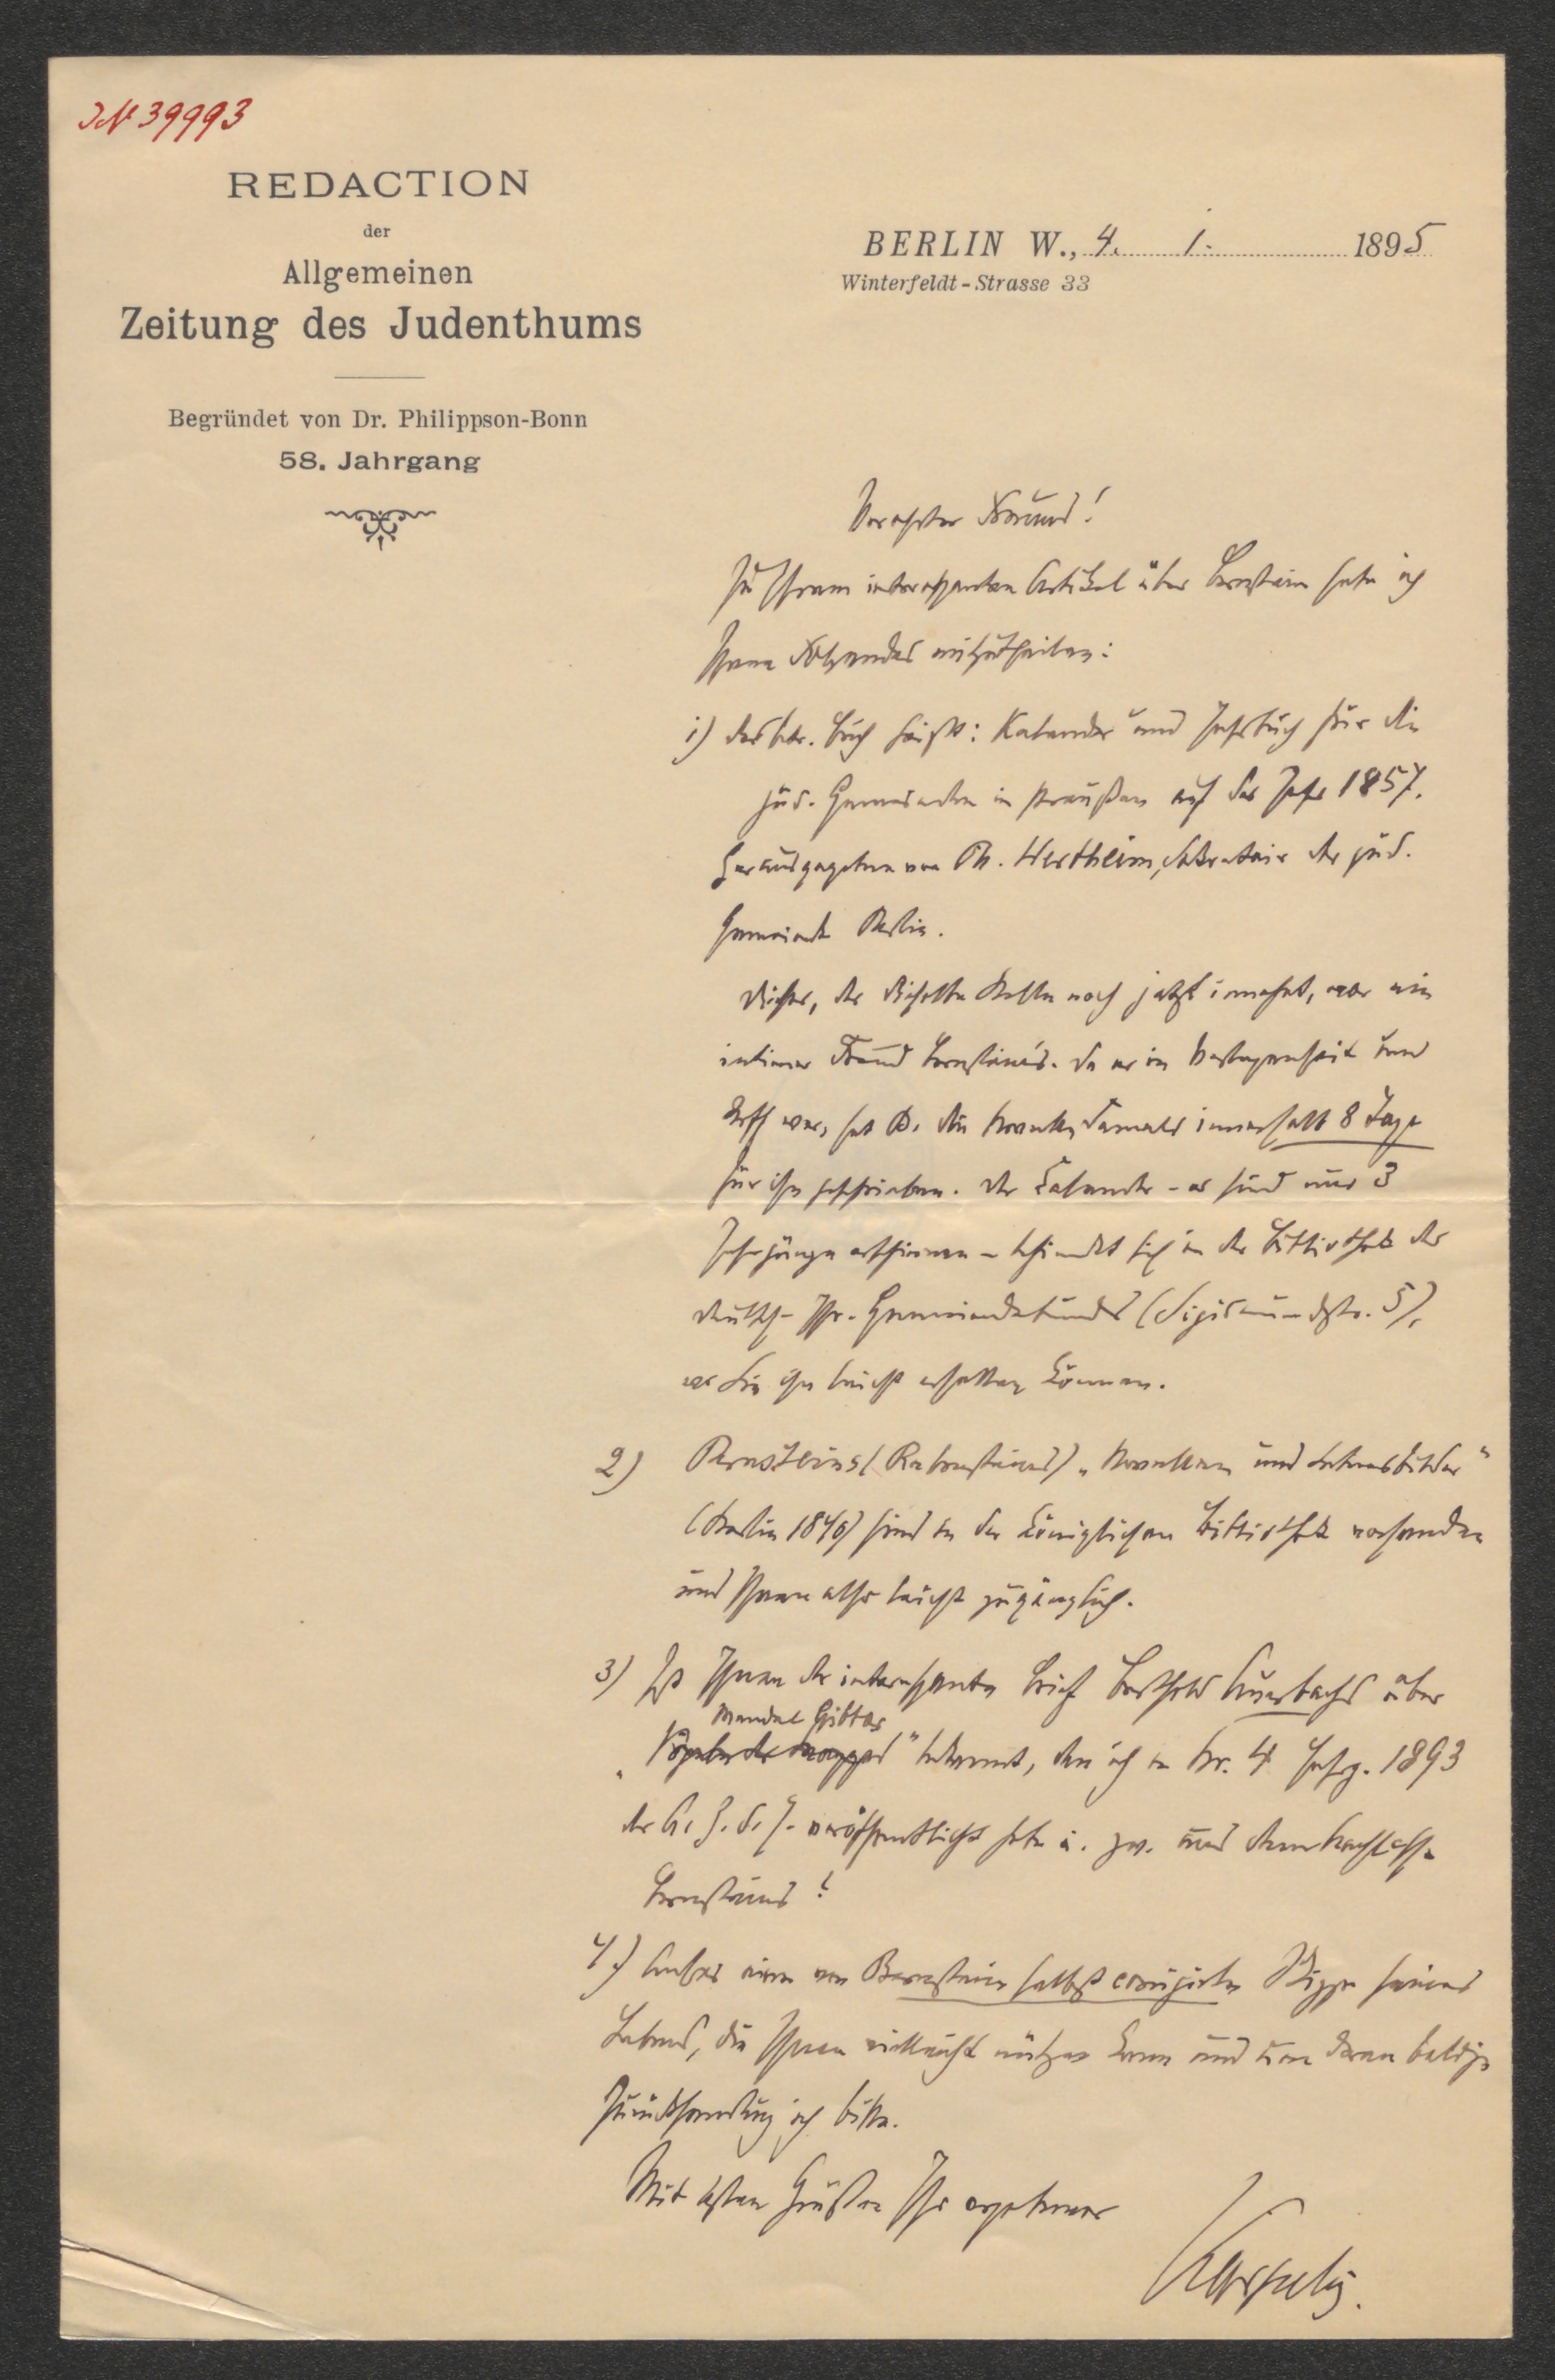 IN 39993
REDACTION
der
Allgemeinen
Zeitung des Judenthums
Begründet von Dr. Philippson-Bonn
58. Jahrgang
BERLIN W., 4. 1. 1895
Winterfeldt-Strasse 33
Verehrter Freund!
Zu Ihrem interessanten Artikel über Bernstein habe ich
Ihnen Folgendes mitzutheilen:
1) das betr. Buch heißt: Kalender und Jahrbuch für die
jüd. Gemeinden in Preußen auf das Jahr 1857.
Herausgegeben von Ph. Wertheim, Sekretair der jüd.
Gemeinde Berlin.
Dieser, der dieselbe Stelle noch jetzt innehat, war ein
intimer Freund Bernstein's. Da er in Verlegenheit um
Stoff war, hat B. die Novelle damals innerhalb 8 Tage
für ihn geschrieben. Der Kalender - es sind nur 3
Jahrgänge erschienen - befindet sich in der Bibliothek des
Deutsch-Isr. Gemeindebundes (Sigismundstr. 5),
wo Sie ihn leicht erhalten können.
2) Bernsteins (Rebensteins) „Novellen und Lebensbilder"
(Berlin 1840) sind in der Königlichen Bibliothek vorhanden
und Ihnen also leicht zugänglich.
3) Ist Ihnen der interessante Brief Berthold Auerbachs über
Mendel Gibbor
„Vögele der Maggid" bekannt, den ich in Nr. 4 Jahrg. 1893
der A. Z. d. J. veröffentlicht habe u. zw. aus dem Nachlasse
Bernsteins?
4) Anbei eine von Bernstein selbst corrigirte Skizze seines
Lebens, die Ihnen vielleicht nützen kann und um deren baldige
Zurücksendung ich bitte.
Mit besten Grüßen Ihr ergebener
Karpeles.